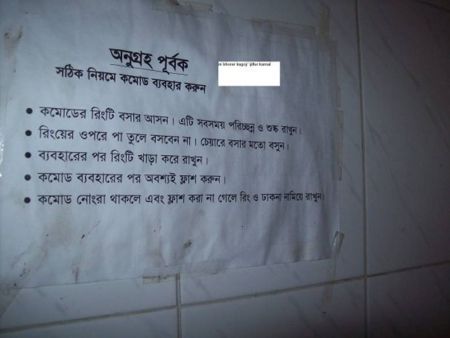 অনুগ্রহ পূর্বক
সঠিক নিয়মে কমোড ব্যবহার করুন
• কমোডের রিংটি বসার আসন। এটি সবসময় পরিচ্ছন্ন ও শুষ্ক রাখুন।
• রিংয়ের ওপরে পা তুলে বসবেন না। চেয়ারে বসার মতো বসুন।
• ব্যবহারের পর রিংটি খাড়া করে রাখুন।
• কমোড ব্যবহারের পর অবশ্যই ফ্লাশ করুন।
• কমোড নোংরা থাকলে এবং ফ্লাশ করা না গেলে রিং ও ঢাকনা নামিয়ে রাখুন।